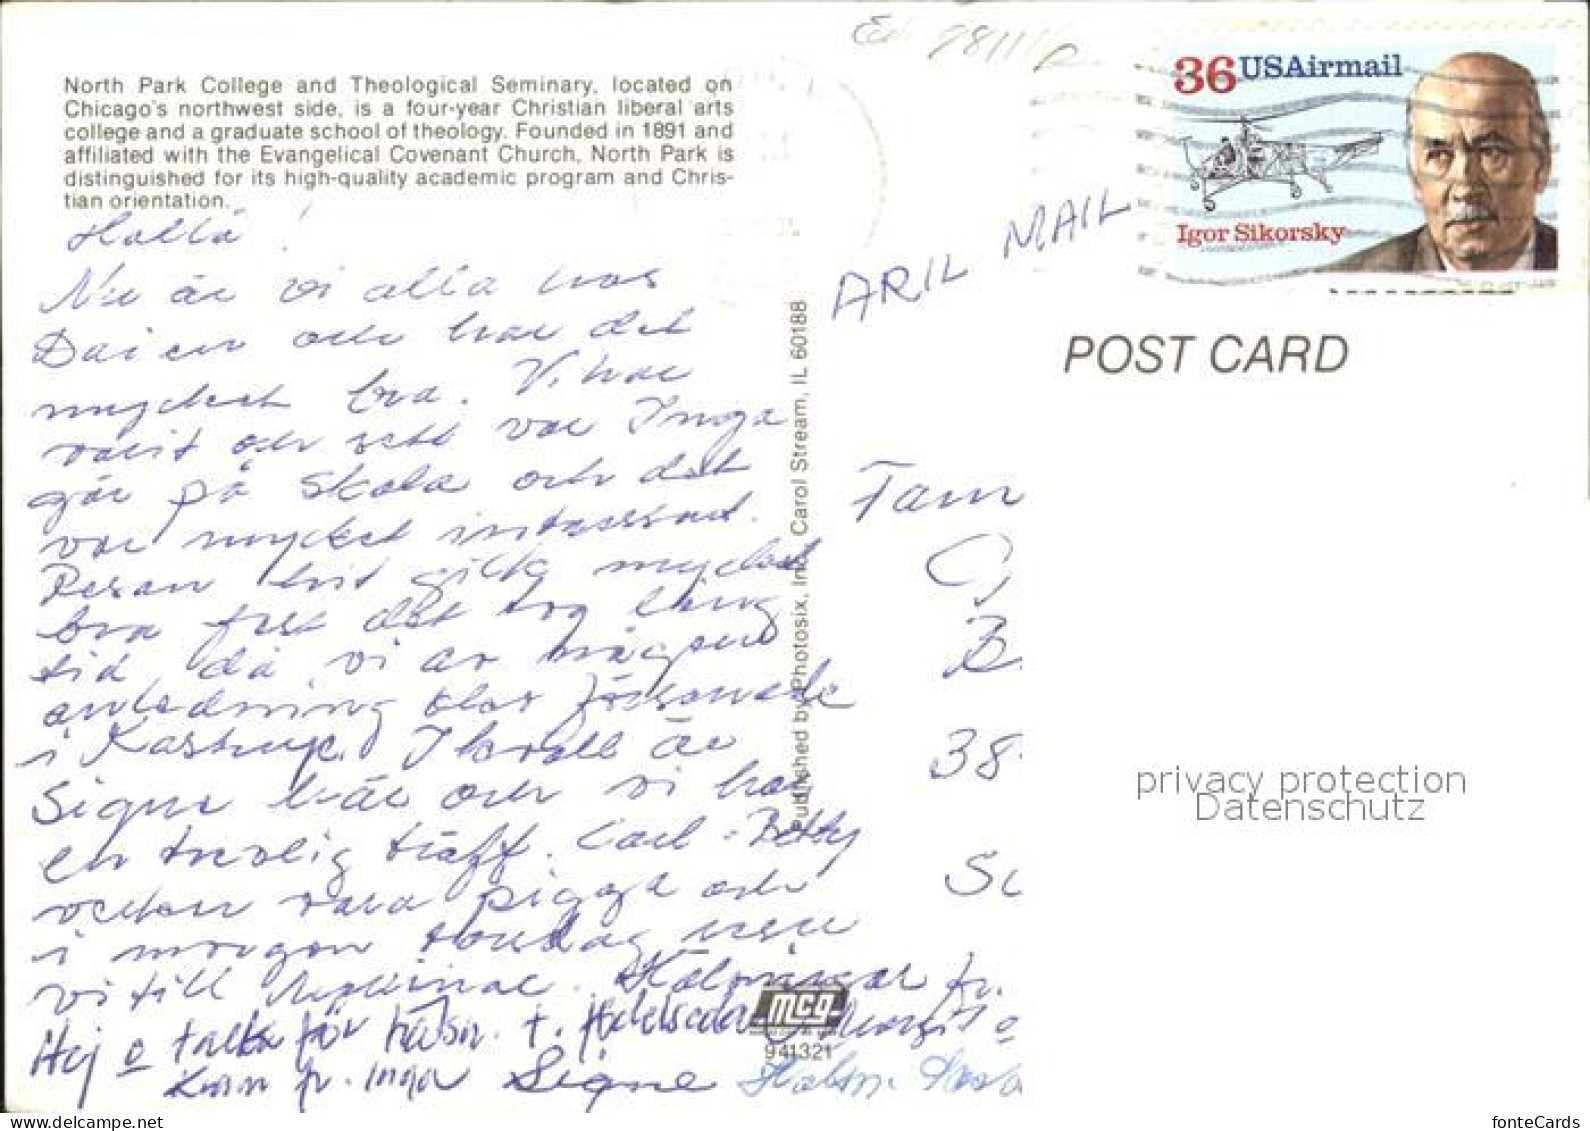 North Park College and Theological Seminary, located on
Chicago's northwest side, is a four-year Christian liberal arts
college and a graduate school of theology. Founded in 1891 and
affiliated with the Evangelical Covenant Church, North Park is
distinguished for its high-quality academic program and Chris-
tian orientation.
Hallå!
Nu är vi alla hos
och har det
mycket bra. Vi har
varit och sett var Inga
går på skola och det
var mycket
Resan hit gick mycket
bra fast det tog lång
tid då vi av någon
anledning blev försenade
i Kastrup. Ikväll är
Signe här och vi har
en trevlig träff. Carl - Betty
pigga och
i morgon
vi till Hälsningar fr.
Hej o tack för
fr. Inga Signe
36 USAirmail
Igor Sikorsky
ARIL MAIL
POST CARD
Fam
B
38
Published by Photosix, Inc., Carol Stream, IL 60188
mcg
941321
privacy protection
Datenschutz
www.delcampe.net
fonteCards